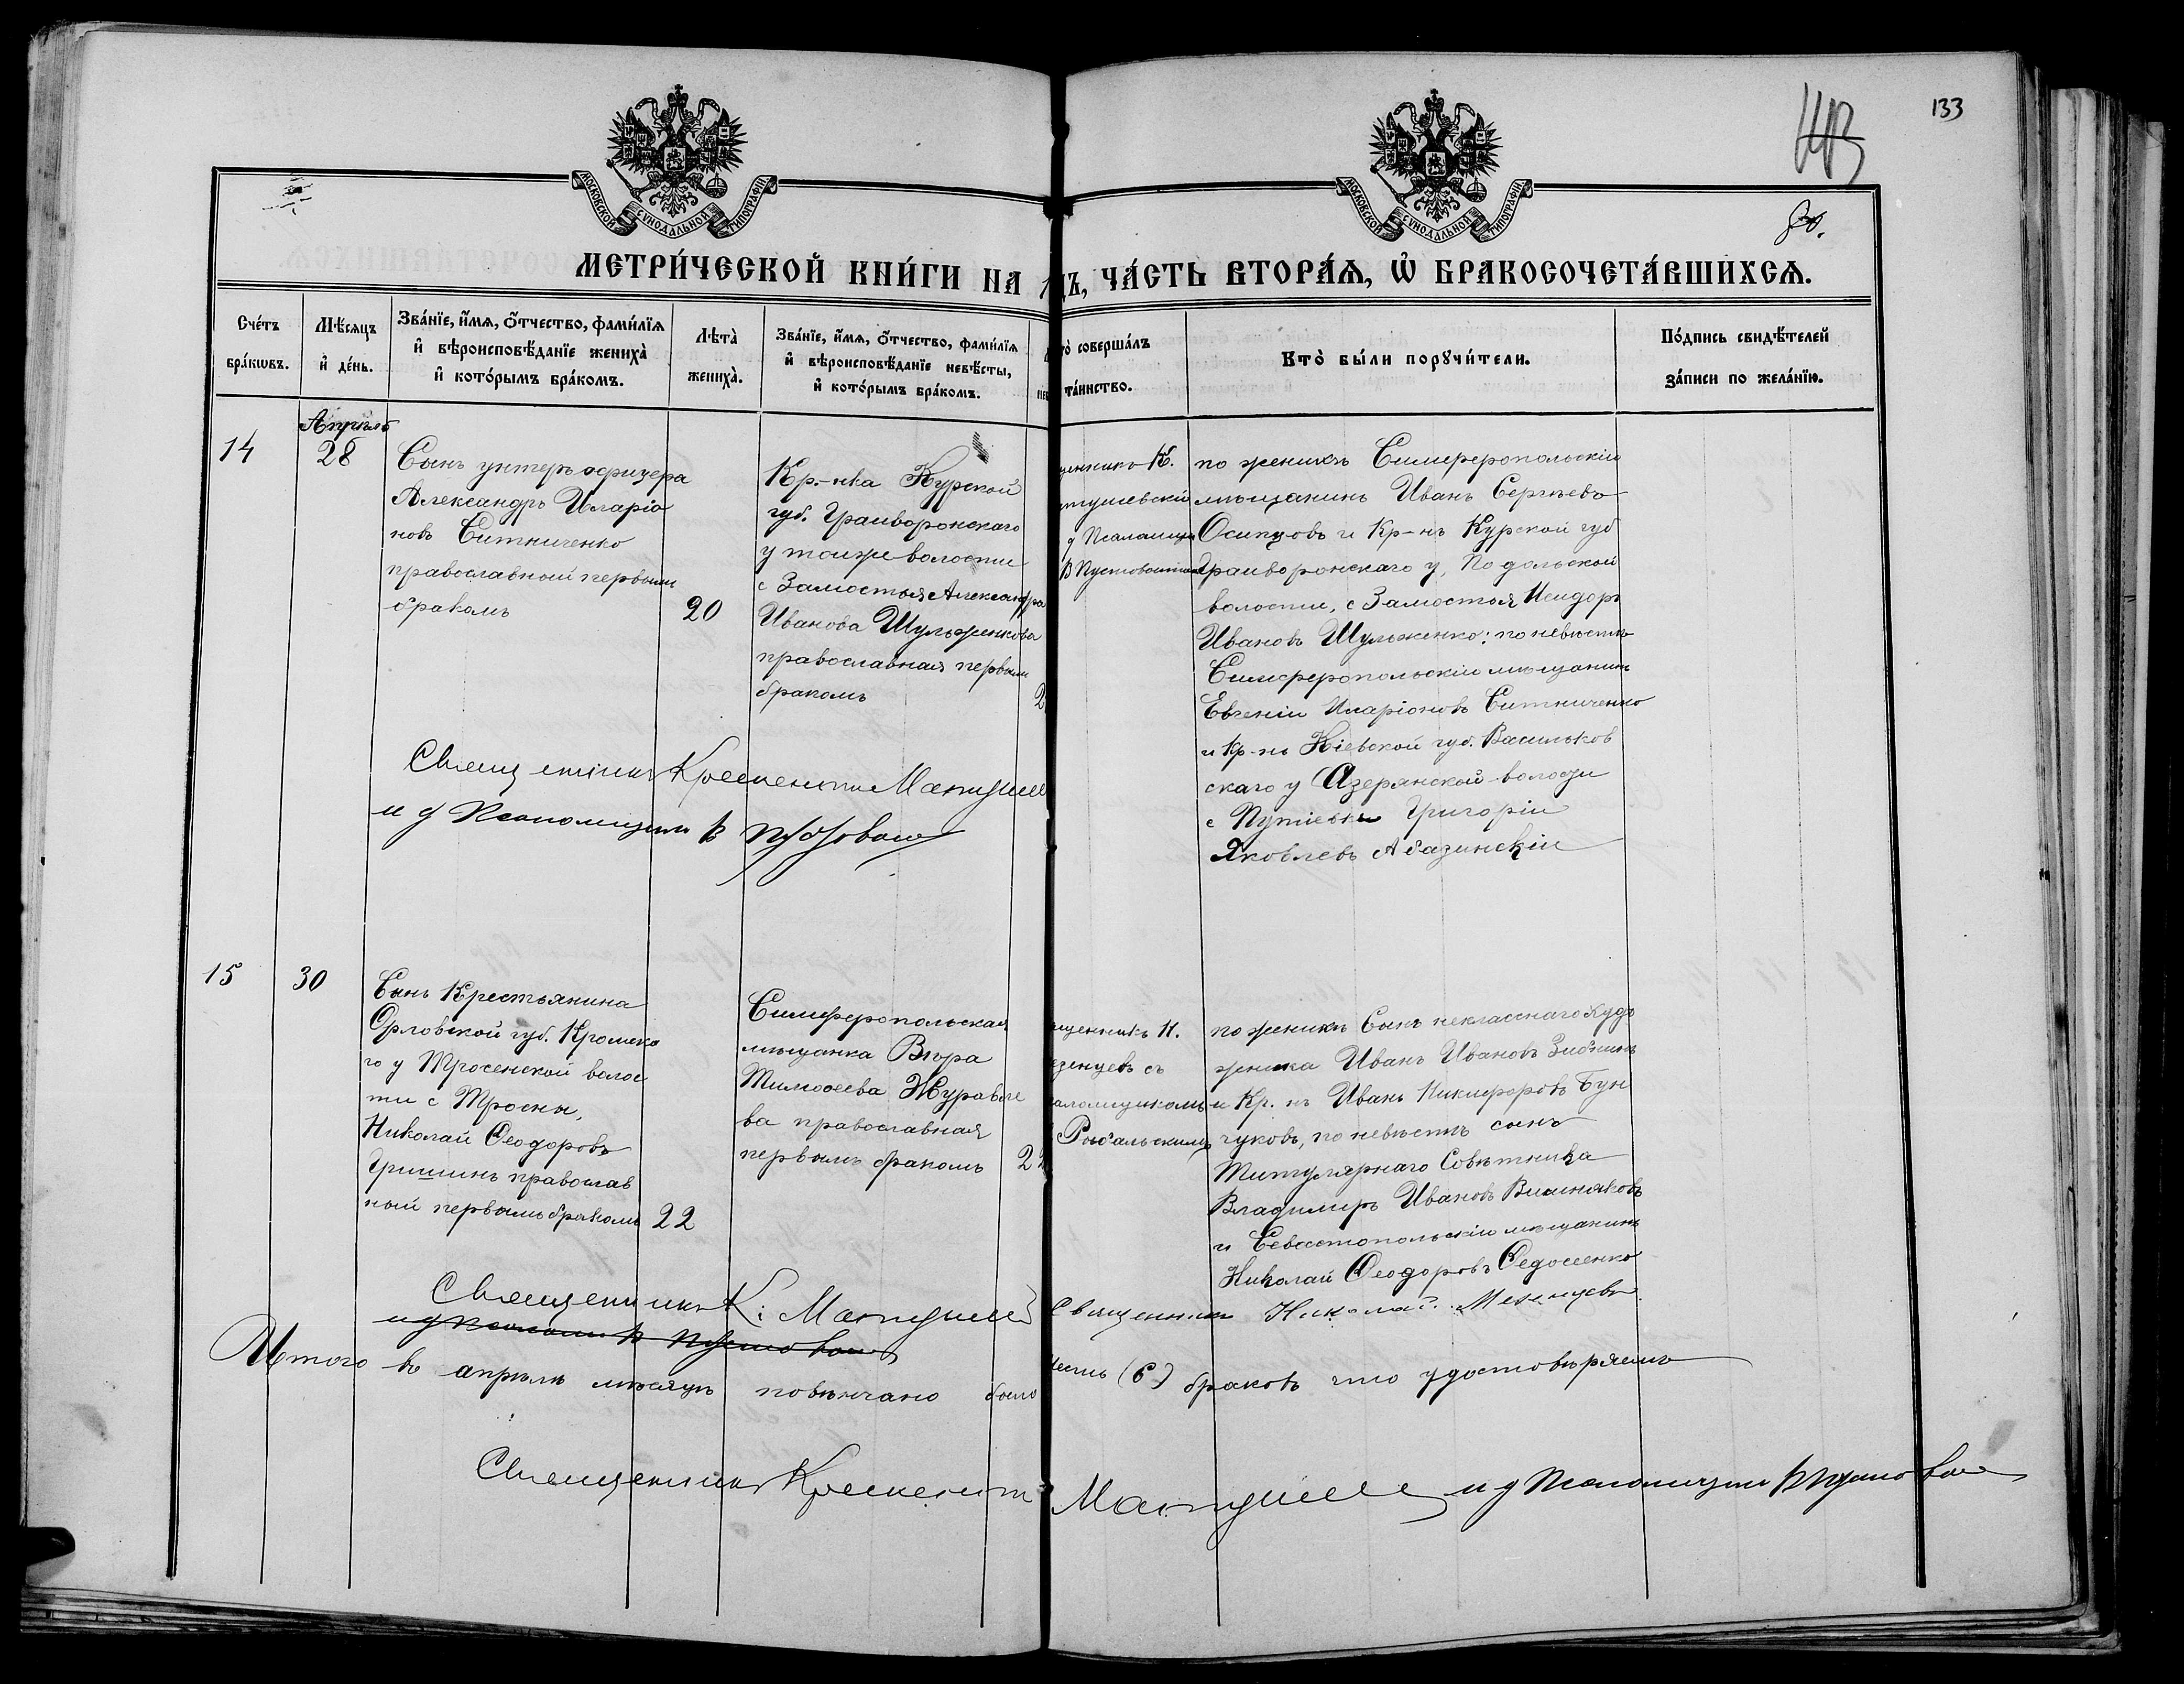 133
МОСКОВСКОЙ СѴНОДАЛЬНОЙ ТИПОГРАФІИ
МОСКОВСКОЙ СѴНОДАЛЬНОЙ ТИПОГРАФІИ
МЕТРИ́ЧЕСКОЙ КНИ́ГИ НА
ЧА́СТЬ ВТОРА́Ѧ, Ѡ҆ БРАКОСОЧЕТА́ВШИХСѦ.
Сче́тъ
бра́кѡвъ.
Мѣ́сѧцъ
и҆ де́нь.
Зва́нїе, и҆́мѧ, ѻ҆́тчество, фами́лїѧ
и҆ вѣроисповѣ́данїе жениха̀
и҆ кото́рымъ бра́комъ.
Лѣ́та̀
жениха̀.
Зва́нїе, и҆́мѧ, ѻ҆́тчество, фами́лїѧ
и҆ вѣроисповѣ́данїе невѣ́сты,
и҆ кото́рымъ бра́комъ.
то̀ соверша́лъ
та́инство.
Кто̀ бы́ли порꙋчи́тели.
По́дпись свидѣ́телей
за́писи по жела́нїю.
14
Апрѣль
28
Сынъ унтеръ офицера
Александръ Иларіо
новъ Ситниченко
православной первымъ
бракомъ
20
Кр-нка Курской
губ. Грайворонскаго
у тойже волости
с Замостья Александра
Иванова Шульженкова
православная первымъ
бракомъ
2
щенникъ К.
тушевскій
д Псаломщ
В Пустовойтов
по женихѣ Симферопольскій
мѣщанинъ Иванъ Сергѣевъ
Осипцовъ и Кр-нъ Курской губ
Грайворонскаго у, Подольской
волости, с Замостья Исидоръ
Ивановъ Шульженко: по невѣстѣ
Симферопольскій мѣщанинъ
Евгеній Иларіоновъ Ситниченко
и Кр-нъ Кіевской губ. Васильков
скаго у Азерянской волости
с Путіевки Григорій
Яковлевъ Абазинскій
Священникъ Крескентъ Матуше
и д Псаломщика В
15
30
Сынъ Крестьянина
Орловской губ. Кромска
го у Тросенской волос
ти с Тросны,
Николай Ѳеодоровъ
Гришинъ православ
ный первымъ бракомъ
22
Симферопольская
мѣщанка Вѣра
Тимоѳеева Журавле
ва православная
первымъ бракомъ
2
щенникъ Н.
езенцевъ съ
аломщикомъ
Рыбальскимъ
по женихѣ Сынъ некласснаго худо
жника Иванъ Ивановъ Зибнинъ
и Кр. нъ Иванъ Никифоровъ Бун
чуковъ, по невѣстѣ сынъ
Титулярнаго Совѣтника
Владимиръ Ивановъ Вишняковъ
и Севастопольскій мѣщанинъ
Николай Ѳеодоровъ Ѳедосенко
Священникъ К: Матуше
Священникъ Николай Мезенцевъ
Итого въ апрѣлѣ мѣсяцѣ повѣнчано было
шесть (6) браковъ что удостовѣряемъ
Священникъ Крескентъ
Матуше и д Псаломщика В Пустовой